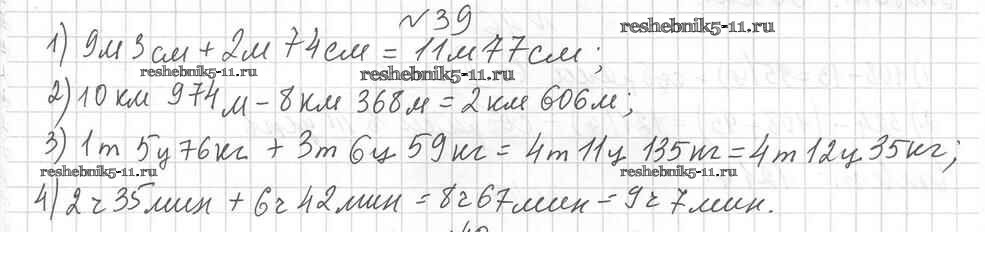 №39
reshebnik5-11.ru
1) 9м 3см + 2м 74см = 11м 77см;
reshebnik5-11.ru reshebnik5-11.ru
2) 10 км 974 м - 8 км 368 м = 2 км 606 м;
3) 1т 5ц 76кг + 3т 6ц 59кг = 4т 11ц 135кг = 4т 12ц 35кг;
reshebnik5-11.ru reshebnik5-11.ru
4) 2ч 35мин + 6ч 42мин = 8ч 67мин = 9ч 7мин.